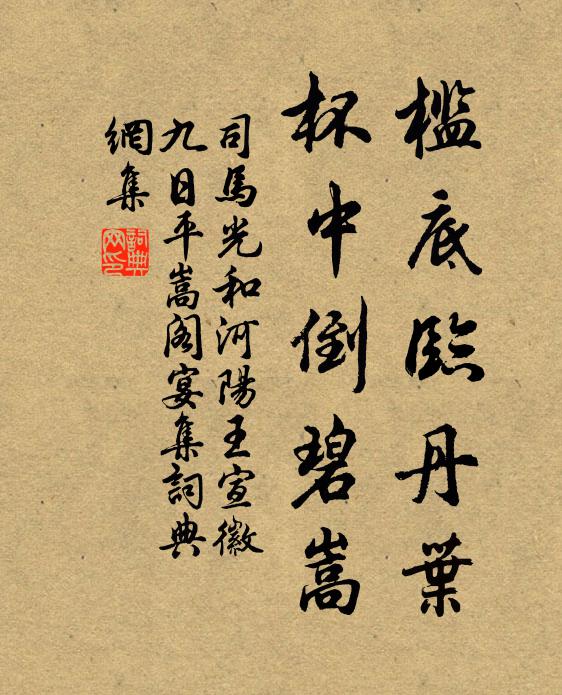 檻底臨丹葉
杯中倒碧嵩
司馬光和河陽王宣徽
九日平嵩閣宴集詞典
網集
詞典網印